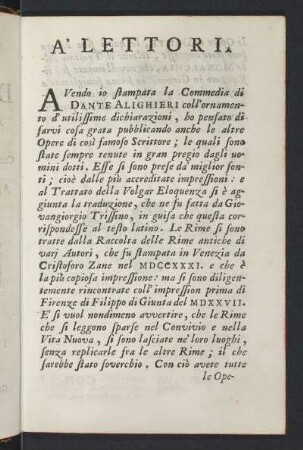 A' LETTORI.
AVendo io stampata la Commedia di
DANTE ALIGHIERI coll'ornamen-
to d'utilissime dichiarazioni, ho pensato di
farvi cosa grata pubblicando anche le altre
Opere di così famoso Scrittore; le quali sono
state sempre tenute in gran pregio dagli uo-
mini dotti. Esse si sono prese da' miglior fon-
ti; cioè dalle più accreditate impressioni: e
al Trattato della Volgar Eloquenza si è ag-
giunta la traduzione, che ne fu fatta da Gio-
vangiorgio Trissino, in guisa che questa cor-
rispondesse al testo latino. Le Rime si sono
tratte dalla Raccolta delle Rime antiche di
varj Autori, che fu stampata in Venezia da
Cristoforo Zane nel MDCCXXXI. e che è
la più copiosa impressione: ma si sono diligen-
temente rincontrate coll' impression prima di
Firenze di Filippo di Giunta del MDXXVII.
E' si vuol nondimeno avvertire, che le Rime
che si leggono sparse nel Convivio e nella
Vita Nuova, si sono lasciate ne' loro luoghi,
senza replicarle fra le altre Rime; il che
sarebbe stato soverchio. Con ciò avete tutte
le Ope-